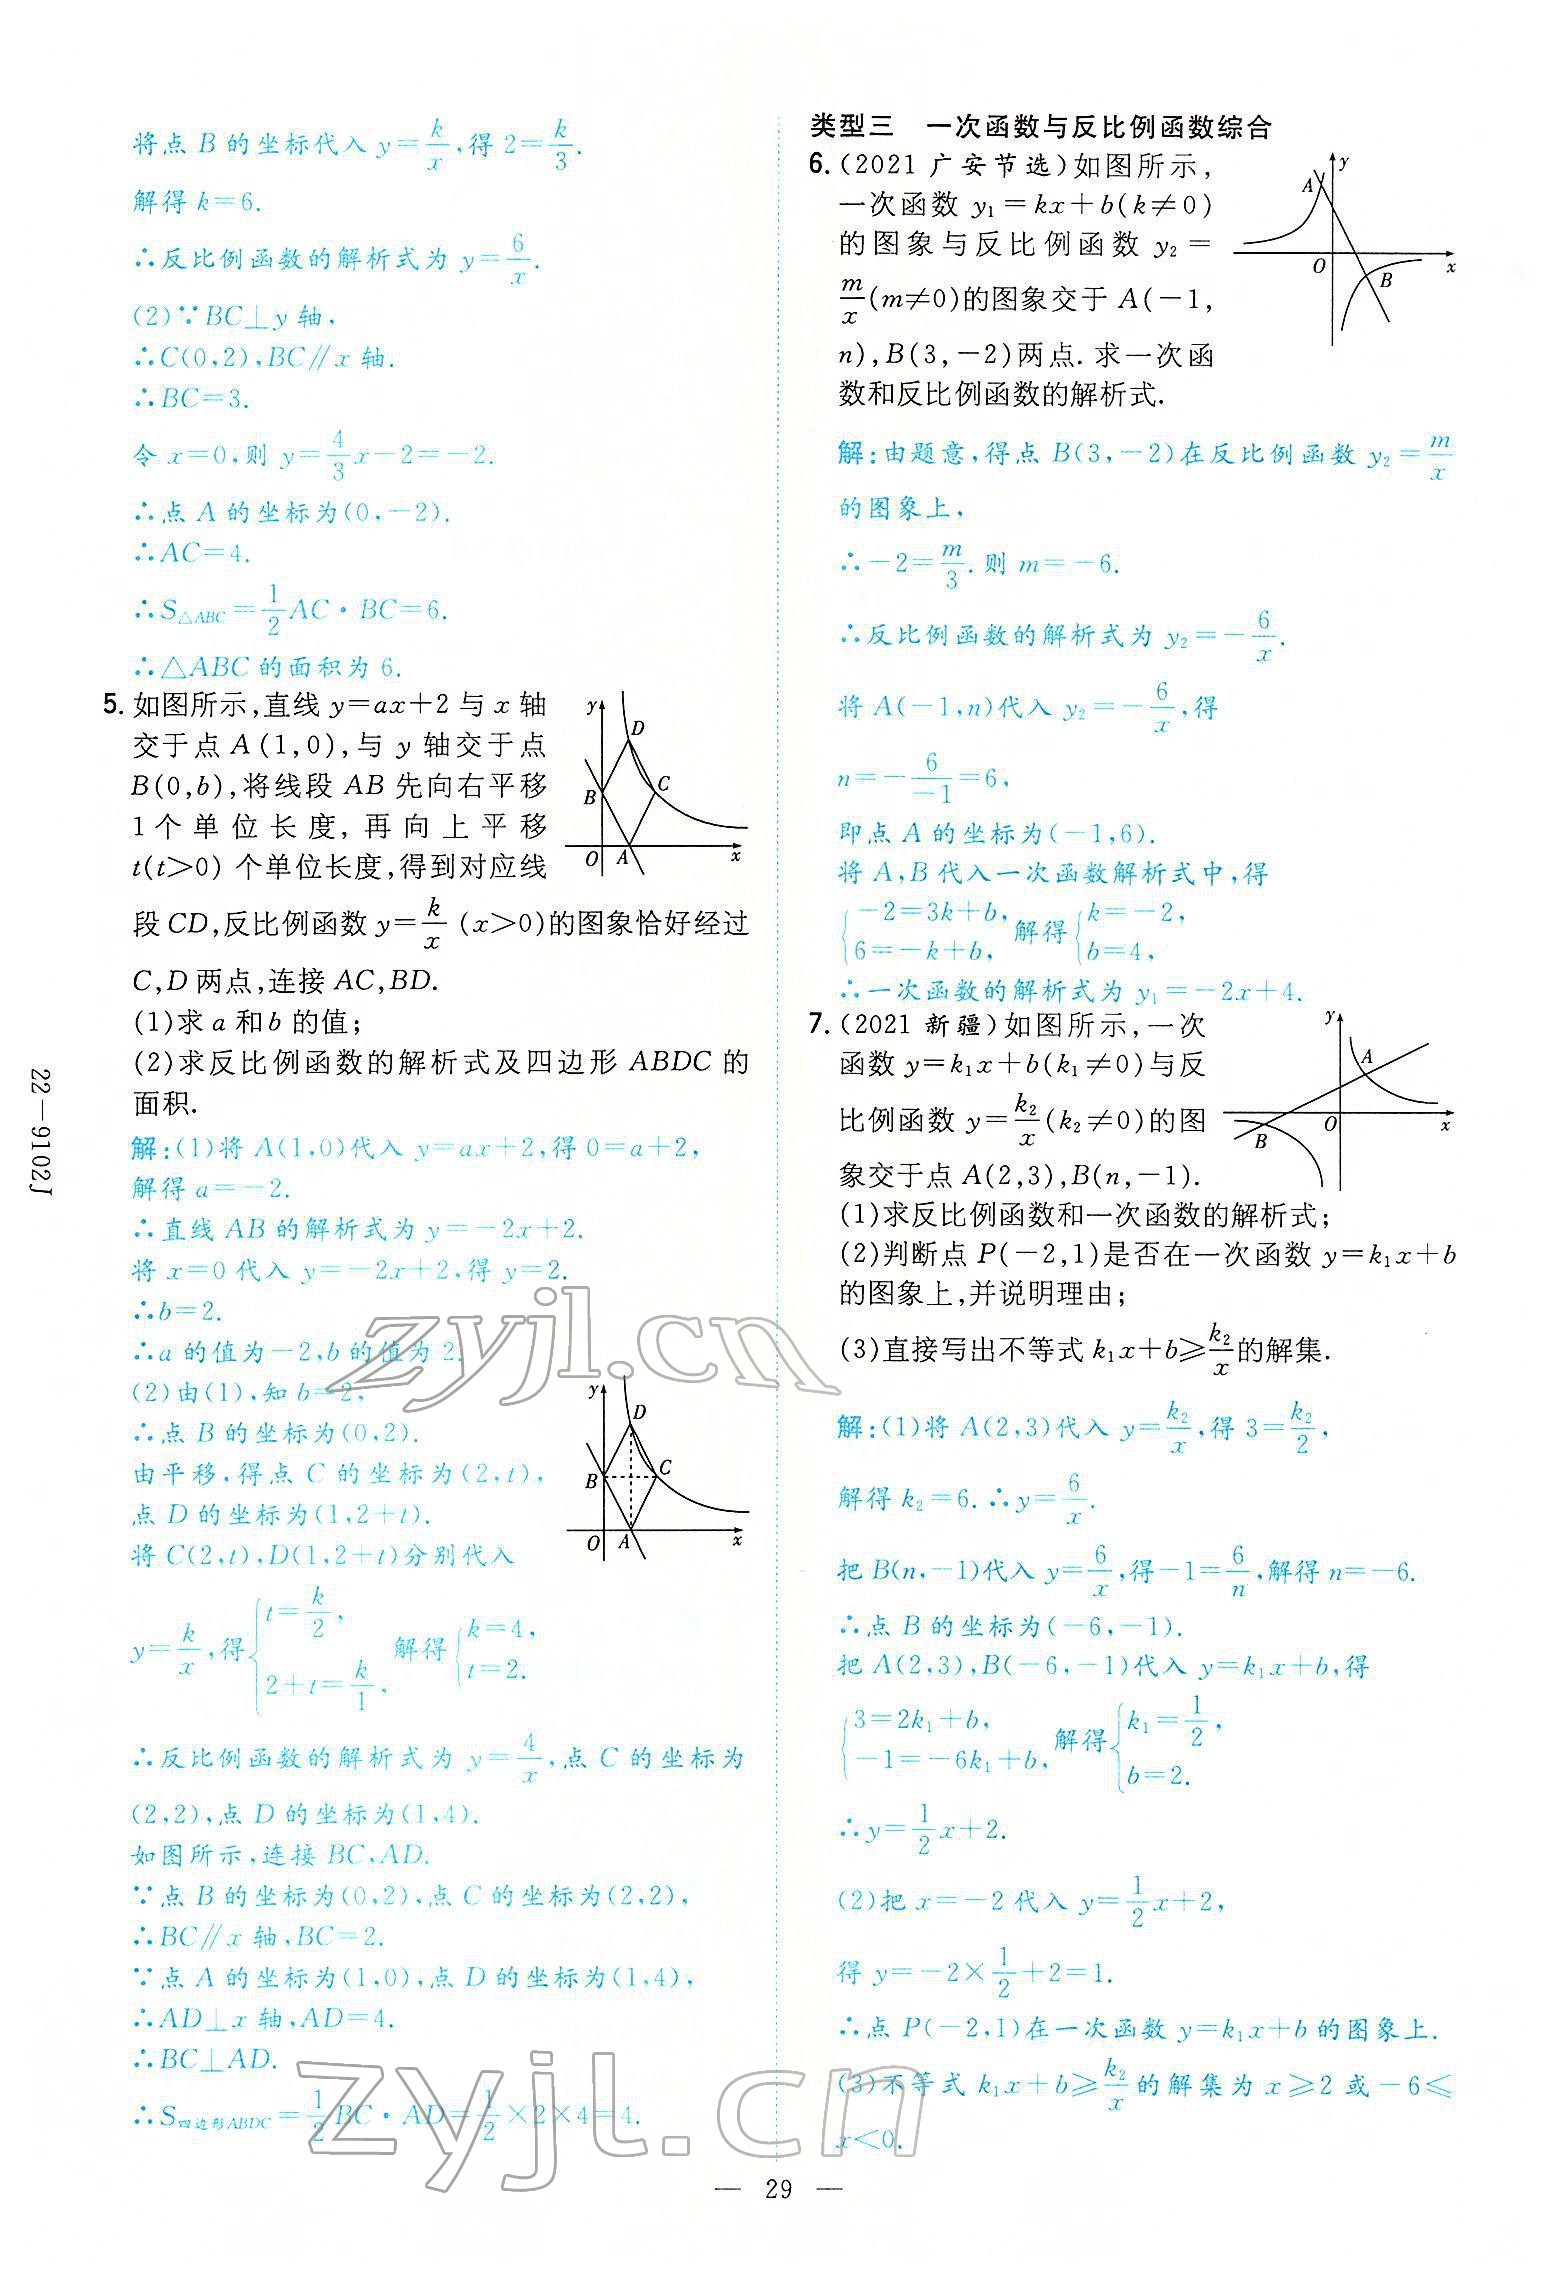 将点 B 的坐标代入 y=k/x,得 2=k/3.
解得 k=6.
∴反比例函数的解析式为 y=6/x.
(2)∵BC⊥y 轴,
∴C(0,2),BC∥x 轴.
∴BC=3.
令 x=0,则 y=4/3x-2=-2.
∴点 A 的坐标为(0,-2).
∴AC=4.
∴S△ABC=1/2AC·BC=6.
∴△ABC 的面积为 6.
5. 如图所示,直线 y=ax+2 与 x 轴
交于点 A(1,0),与 y 轴交于点
B(0,b),将线段 AB 先向右平移
1个单位长度,再向上平移
t(t>0) 个单位长度,得到对应线
段CD,反比例函数 y=k/x (x>0)的图象恰好经过
C,D 两点,连接 AC,BD.
(1)求 a 和 b 的值;
(2)求反比例函数的解析式及四边形 ABDC 的
面积.
y
D
B
C
O
A
x
解:(1)将 A(1,0)代入 y=ax+2,得 0=a+2,
解得 a=-2.
∴直线 AB 的解析式为 y=-2x+2.
将 x=0 代入 y=-2x+2,得 y=2.
∴b=2.
∴a 的值为-2,b 的值为 2.
(2)由(1),知 b=2,
∴点 B 的坐标为(0,2).
由平移,得点 C 的坐标为(2,t),
点 D 的坐标为(1,2+t).
将 C(2,t),D(1,2+t)分别代入
y=k/x,得{t=k/2, 2+t=k/1, 解得{k=4, t=2.
y
D
B
C
O
A
x
∴反比例函数的解析式为 y=4/x,点 C 的坐标为
(2,2),点 D 的坐标为(1,4).
如图所示,连接 BC,AD.
∵点 B 的坐标为(0,2),点 C 的坐标为(2,2),
∴BC∥x 轴,BC=2.
∵点 A 的坐标为(1,0),点 D 的坐标为(1,4),
∴AD⊥x 轴,AD=4.
∴BC⊥AD.
∴S四边形ABDC=1/2BC·AD=1/2×2×4=4.
类型三 一次函数与反比例函数综合
6. (2021 广安节选)如图所示,
一次函数 y₁=kx+b(k≠0)
的图象与反比例函数 y₂=
m/x(m≠0)的图象交于 A(-1,
n),B(3,-2)两点. 求一次函
数和反比例函数的解析式.
y
A
O
B
x
解:由题意,得点 B(3,-2)在反比例函数 y₂=m/x
的图象上,
∴-2=m/3.则 m=-6.
∴反比例函数的解析式为 y₂=-6/x.
将 A(-1,n)代入 y₂=-6/x,得
n=-6/-1=6,
即点 A 的坐标为(-1,6).
将 A,B 代入一次函数解析式中,得
{-2=3k+b, 6=-k+b, 解得{k=-2, b=4,
∴一次函数的解析式为 y₁=-2x+4.
7. (2021 新疆)如图所示,一次
函数 y=k₁x+b(k₁≠0)与反
比例函数 y=k₂/x(k₂≠0)的图
象交于点 A(2,3),B(n,-1).
(1)求反比例函数和一次函数的解析式;
(2)判断点 P(-2,1)是否在一次函数 y=k₁x+b
的图象上,并说明理由;
(3)直接写出不等式 k₁x+b≥k₂/x的解集.
y
A
O
B
x
解:(1)将 A(2,3)代入 y=k₂/x,得 3=k₂/2,
解得 k₂=6.∴y=6/x.
把 B(n,-1)代入 y=6/x,得-1=6/n,解得 n=-6.
∴点 B 的坐标为(-6,-1).
把 A(2,3),B(-6,-1)代入 y=k₁x+b,得
{3=2k₁+b, -1=-6k₁+b, 解得{k₁=1/2, b=2.
∴y=1/2x+2.
(2)把 x=-2 代入 y=1/2x+2,
得 y=-2×1/2+2=1.
∴点 P(-2,1)在一次函数 y=k₁x+b 的图象上.
(3)不等式 k₁x+b≥k₂/x的解集为 x≥2 或-6≤
x<0.
22—9102J
— 29 —
zyjl.cn
zyjl.cn